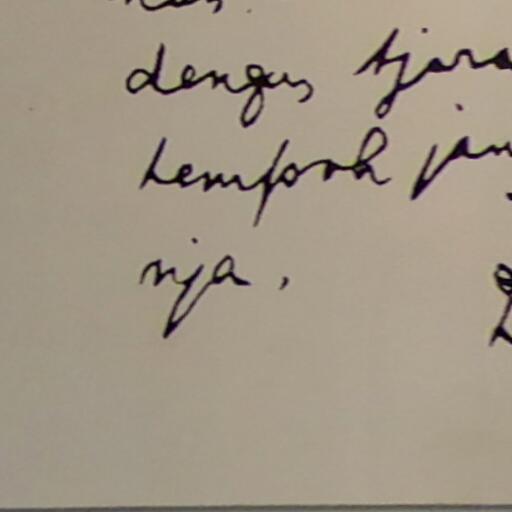 dengan tjara
tempoh jan
nja.